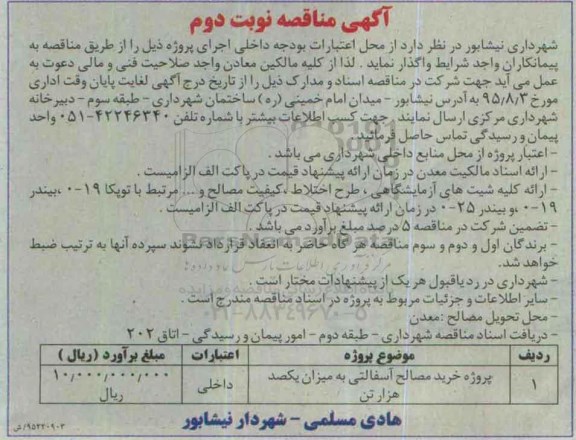 آگهی مناقصه نوبت دوم
شهرداری نیشابور در نظر دارد از محل اعتبارات بودجه داخلی اجرای پروژه ذیل را از طریق مناقصه به
پیمانکاران واجد شرایط واگذار نماید . لذا از کلیه مالکین معادن واجد صلاحیت فنی و مالی دعوت به
عمل می آید جهت شرکت در مناقصه اسناد و مدارک ذیل را از تاریخ درج آگهی لغایت پایان وقت اداری
مورخ ۹۵/۸/۳ به آدرس نیشابور - میدان امام خمینی (ره) ساختمان شهرداری - طبقه سوم - دبیرخانه
شهرداری مرکزی ارسال نمایند . جهت کسب اطلاعات بیشتر با شماره تلفن ۴۲۲۴۶۳۴۰-۰۵۱ واحد
پیمان و رسیدگی تماس حاصل فرمائید.
- اعتبار پروژه از محل منابع داخلی شهرداری می باشد .
- ارائه اسناد مالکیت معدن در زمان ارائه پیشنهاد قیمت در پاکت الف الزامیست .
- ارائه کلیه شیت های آزمایشگاهی ، طرح اختلاط ،کیفیت مصالح و ... مرتبط با توپکا ۱۹-۰ ،بیندر
۱۹-۰ ،و بیندر ۲۵-۰ در زمان ارائه پیشنهاد قیمت در پاکت الف الزامیست .
- تضمین شرکت در مناقصه ۵ درصد مبلغ برآورد می باشد .
- برندگان اول و دوم و سوم مناقصه هر گاه حاضر به انعقاد قرارداد نشوند سپرده آنها به ترتیب ضبط
خواهد شد.
- شهرداری در رد یا قبول هر یک از پیشنهادات مختار است .
- سایر اطلاعات و جزئیات مربوط به پروژه در اسناد مناقصه مندرج است .
- محل تحویل مصالح :معدن
۰۲۱-۸۸۳۴۹۶۷۰-۵
- دریافت اسناد مناقصه شهرداری - طبقه دوم - امور پیمان و رسیدگی - اتاق ۲۰۲
ردیف موضوع پروژه اعتبارات مبلغ برآورد (ریال )
۱ پروژه خرید مصالح آسفالتی به میزان یکصد هزار تن داخلی ۱۰,۰۰۰,۰۰۰,۰۰۰ ریال
هادی مسلمی - شهردار نیشابور
۹۵۲۲۰۹۰۳/ض